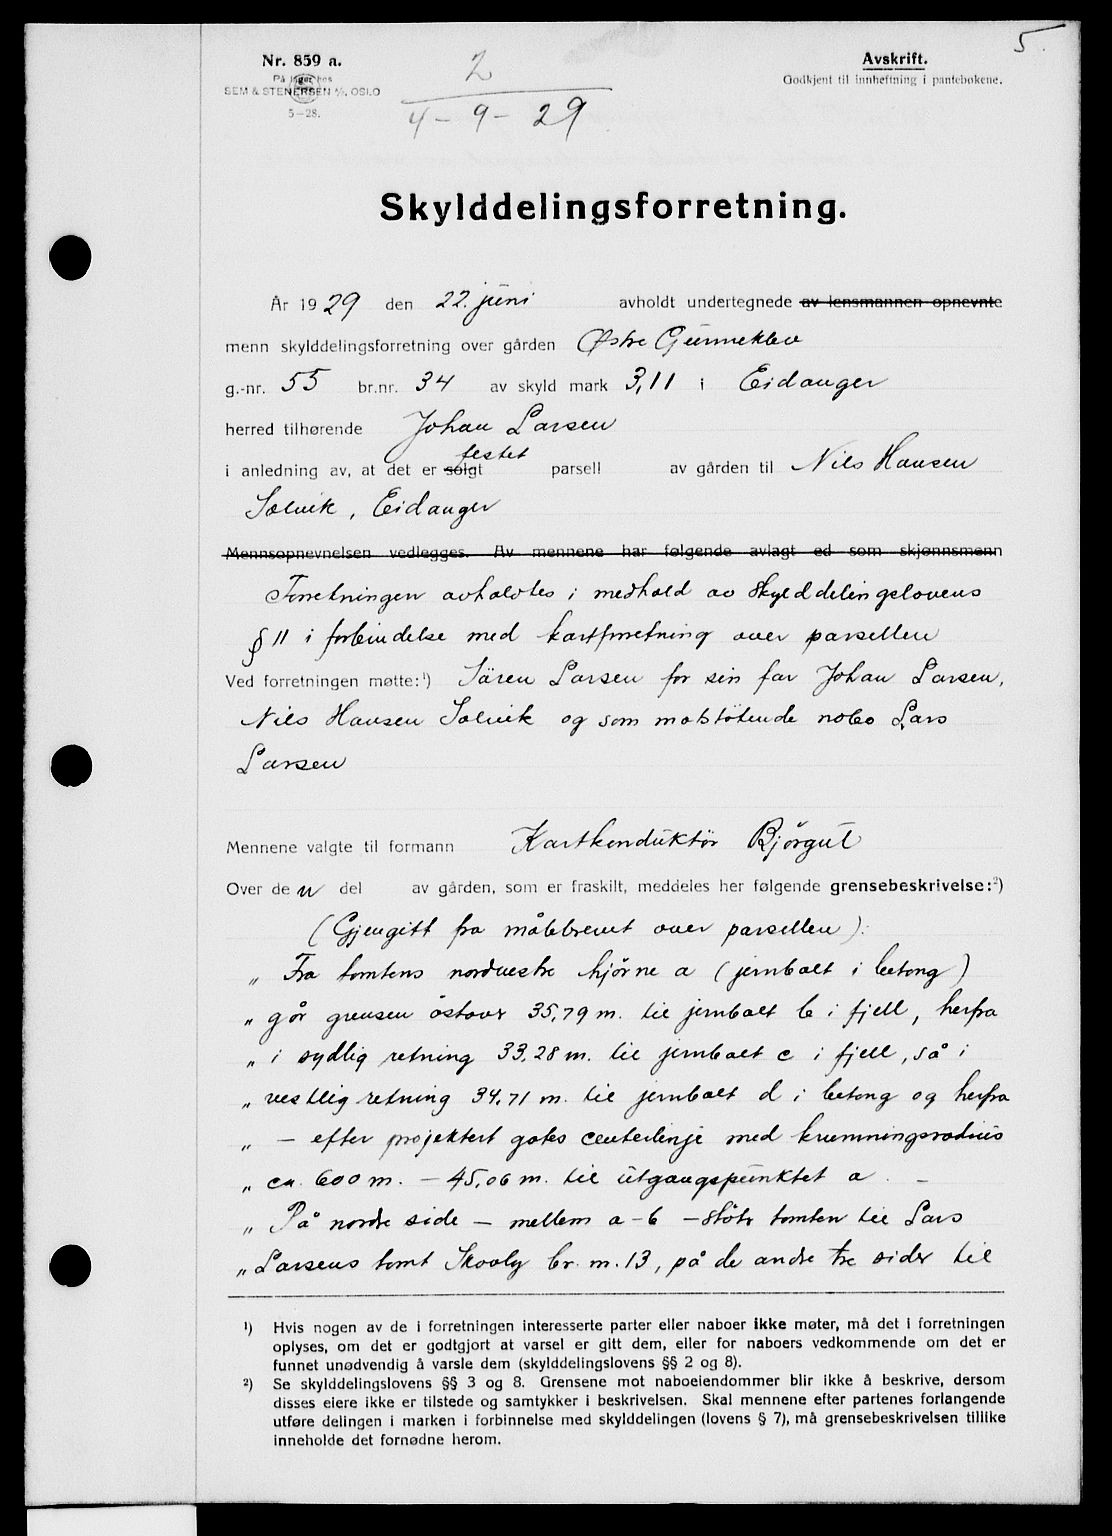 5.
Nr. 859 a.
På lager hos
SEM & STENERSEN A/S, OSLO
5—28.
2
4 - 9 - 29
Avskrift.
Godkjent til innheftning i pantebøkene.
Skylddelingsforretning.
År 1929 den 22. juni avholdt undertegnede av lensmannen opnevnte
menn skylddelingsforretning over gården Østre Gunneklev
g.-nr. 55 br.nr. 34 av skyld mark 3,11 i Eidanger
herred tilhørende Johan Larsen
festet
i anledning av, at det er solgt parsell av gården til Nils Hansen
Solvik, Eidanger
Mennsopnevnelsen vedlegges. Av mennene har følgende avlagt ed som skjønnsmenn
Forretningen avholdtes i medhold av skylddelingslovens
§ 11 i forbindelse med kartforretning over parsellen
Ved forretningen møtte:¹) Sören Larsen for sin far Johan Larsen,
Nils Hansen Solvik og som motstötende nabo Lars
Larsen
Mennene valgte til formann Kartkonduktör Björgul
Over den del av gården, som er fraskilt, meddeles her følgende grensebeskrivelse:²)
(Gjengitt fra målebrevet over parsellen):
„ Fra tomtens nordvestre hjörne a (jernbolt i betong)
„ går grensen östover 35,79 m. til jernbolt b i fjell, herfra
„ i sydlig retning 33,28 m. til jernbolt c i fjell, så i
„ vestlig retning 34,71 m. til jernbolt d i betong og herfra
„ — efter projektert gates centerlinje med krumningsradius
„ ca. 600 m. — 45,06 m. til utgangspunktet a. -
„ På nordre side — mellem a-b — stöter tomten til Lars
„ Larsens tomt Skooly br. nr. 13, på de andre tre sider til
¹) Hvis nogen av de i forretningen interesserte parter eller naboer ikke møter, må det i forretningen
oplyses, om det er godtgjort at varsel er gitt dem, eller for naboers vedkommende om det er
funnet unødvendig å varsle dem (skylddelingslovens §§ 2 og 8).
²) Se skylddelingslovens §§ 3 og 8. Grensene mot naboeiendommer blir ikke å beskrive, dersom
disses eiere ikke er tilstede og samtykker i beskrivelsen. Skal mennene efter partenes forlangende
utføre delingen i marken i forbinnelse med skylddelingen (lovens § 7), må grensebeskrivelsen tillike
inneholde det fornødne herom.